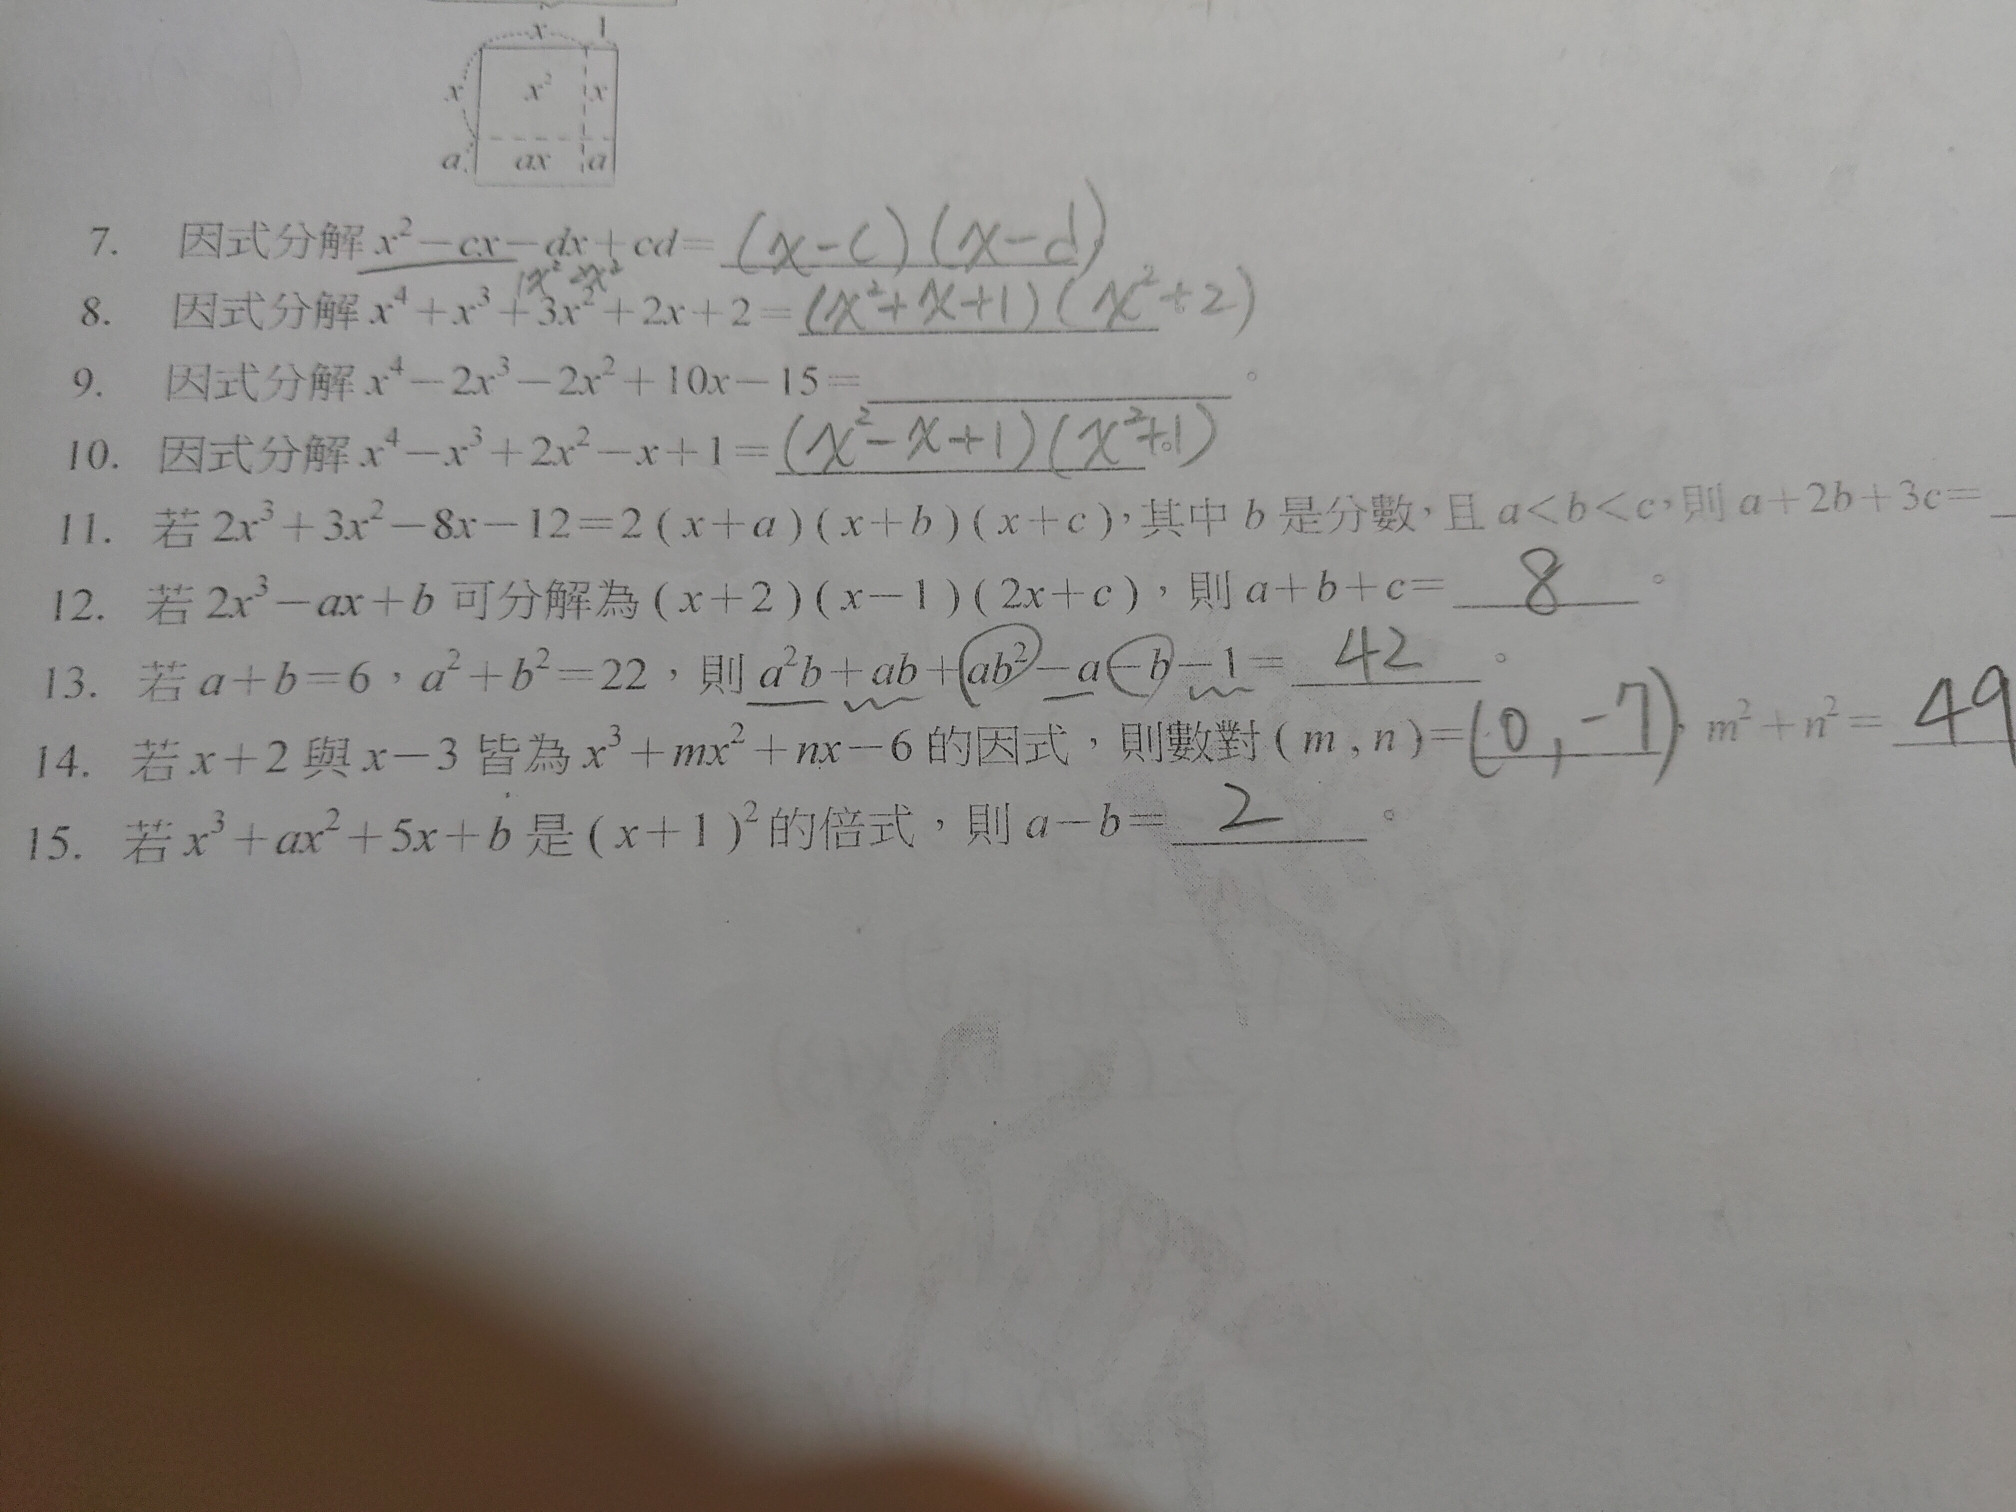 x 1
x x² x
a ax a
7. 因式分解 x²－cx－dx＋cd＝(x-c)(x-d)
1x² 2x²
8. 因式分解 x⁴＋x³＋3x²＋2x＋2＝(x²+x+1)(x²+2)
9. 因式分解 x⁴－2x³－2x²＋10x－15＝ 。
10. 因式分解 x⁴－x³＋2x²－x＋1＝(x²-x+1)(x²+1)。
11. 若 2x³＋3x²－8x－12＝2(x＋a)(x＋b)(x＋c)，其中 b 是分數，且 a＜b＜c，則 a＋2b＋3c＝
12. 若 2x³－ax＋b 可分解為(x＋2)(x－1)(2x＋c)，則 a＋b＋c＝ 8 。
13. 若 a＋b＝6，a²＋b²＝22，則 a²b＋ab＋ab²－a－b－1＝ 42 。
14. 若 x＋2 與 x－3 皆為 x³＋mx²＋nx－6 的因式，則數對(m , n)＝(0,-7)，m²＋n²＝ 49
15. 若 x³＋ax²＋5x＋b 是(x＋1)²的倍式，則 a－b＝ 2 。